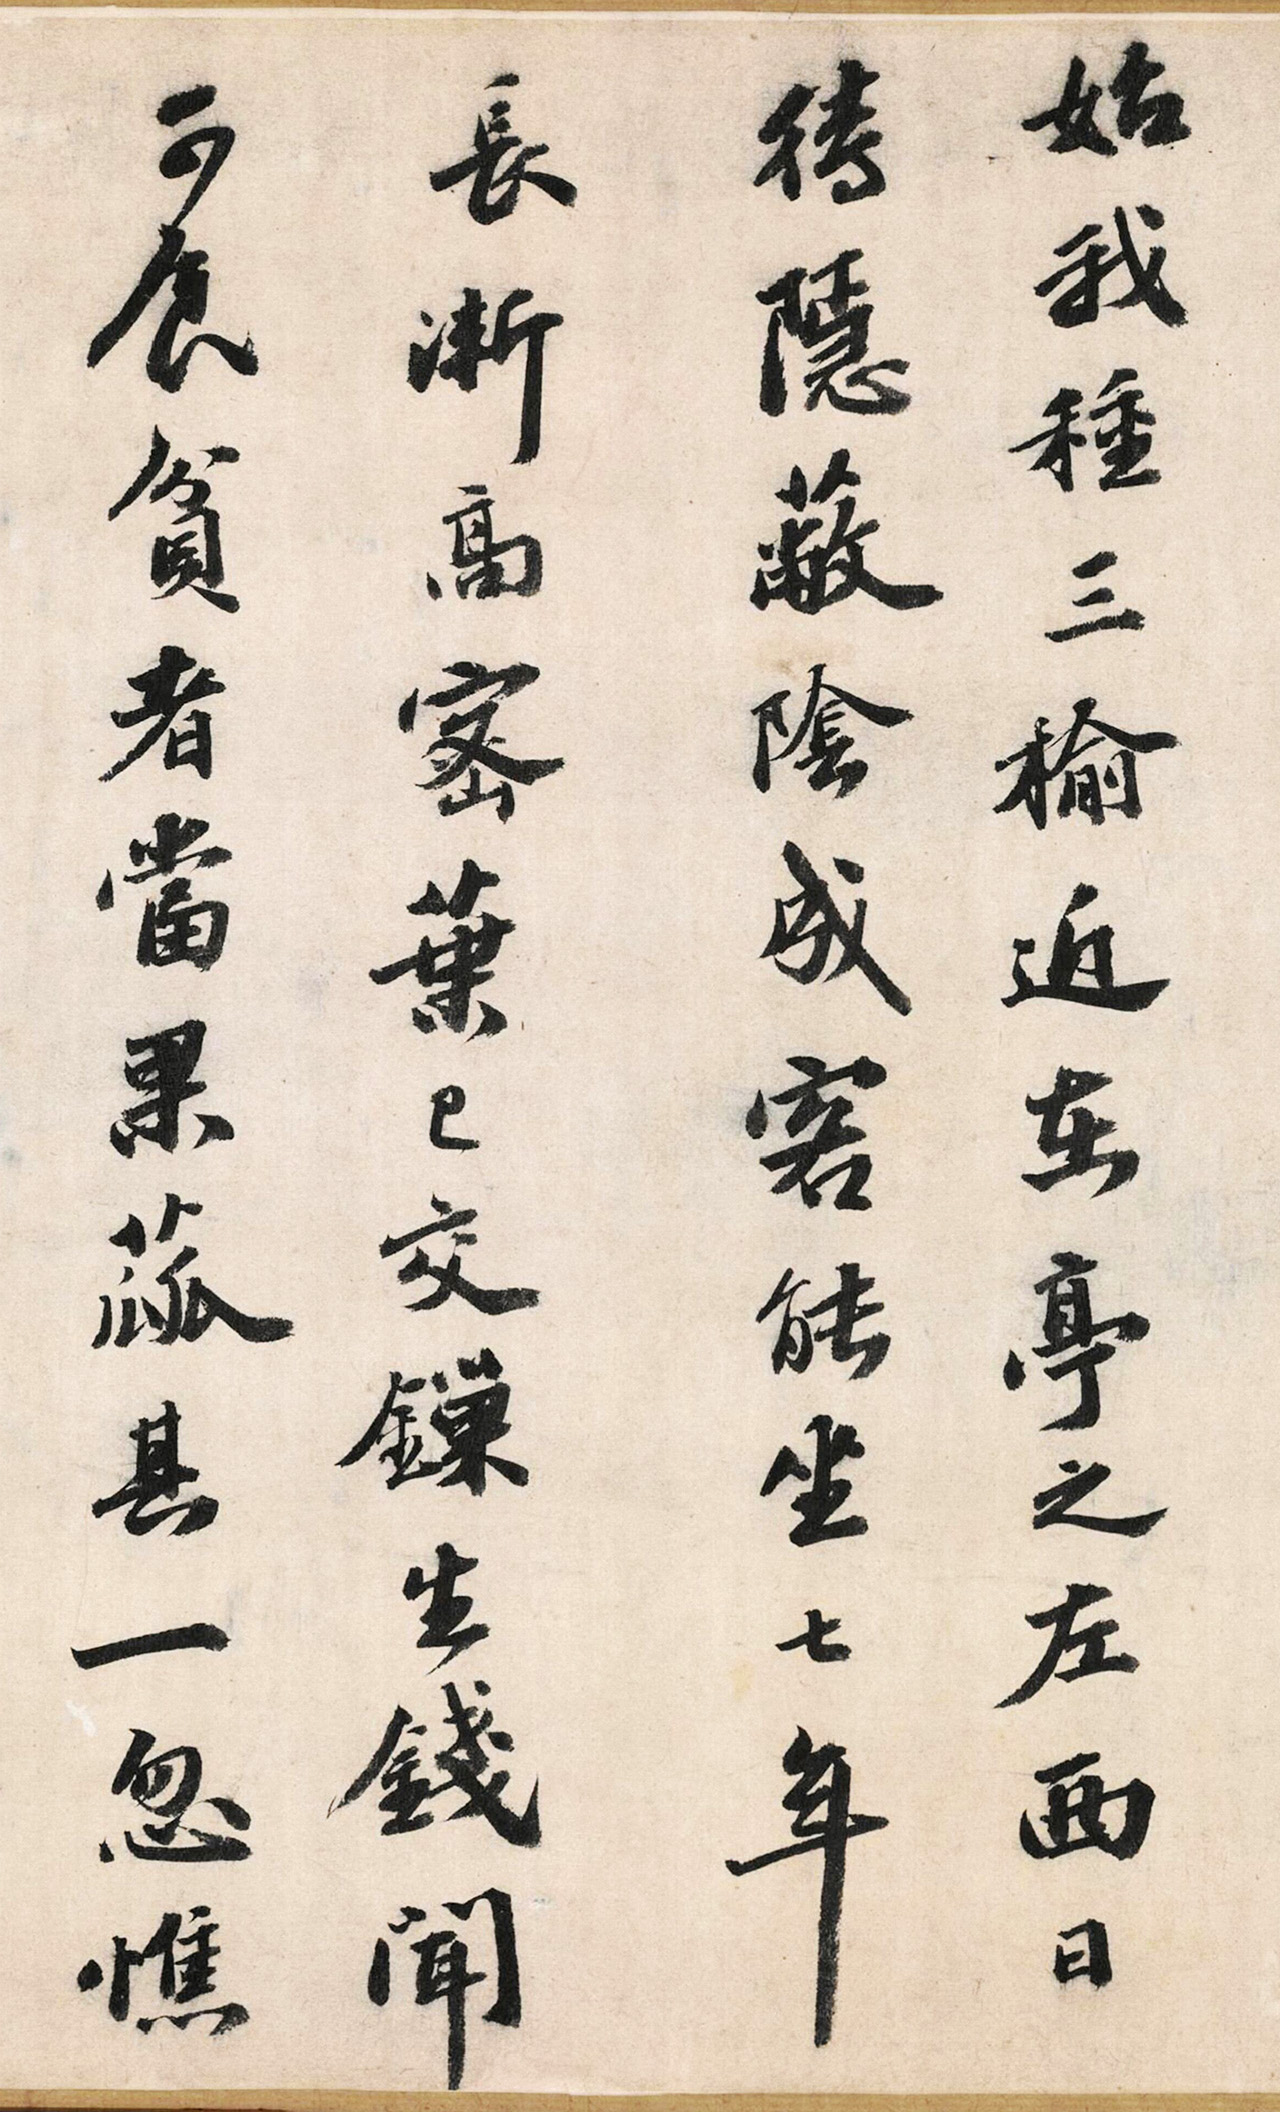 始我種三榆近在亭之左西日
待隱蔽陰成客能坐七年
長漸高密葉已交鏁生錢聞
可食貧者當果蓏甚一忽憔